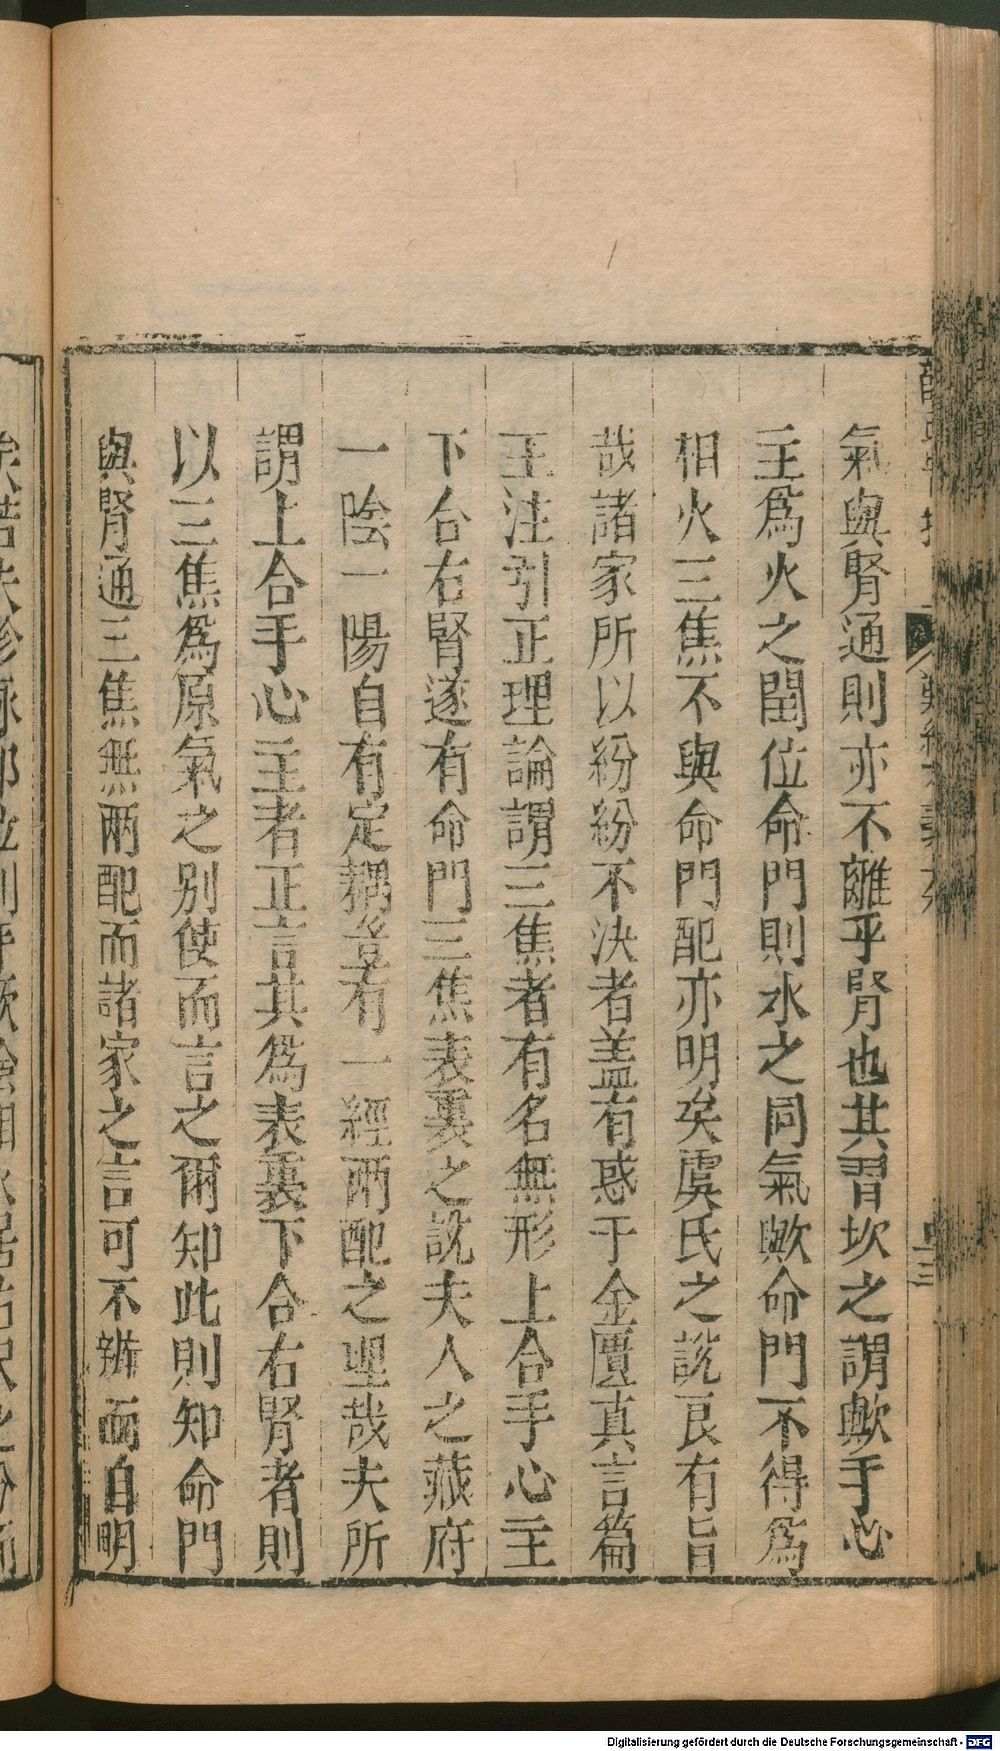 氣與腎通則亦不離乎腎也其習坎之謂歟手心
主爲火之閏位命門則水之同氣歟命門不得爲
相火三焦不與命門配亦明矣虞氏之説良有旨
哉諸家所以紛紛不決者盖有惑于金匱真言篇
王注引正理論謂三焦者有名無形上合手心主
下合右腎遂有命門三焦表裏之説夫人之藏府
一陰一陽自有定耦豈有一經兩配之理哉夫所
謂上合手心主者正言其爲表裏下合右腎者則
以三焦爲原氣之别使而言之爾知此則知命門
與腎通三焦無兩配而諸家之言可不辨而自明
Digitalisierung gefördert durch die Deutsche Forschungsgemeinschaft - DFG